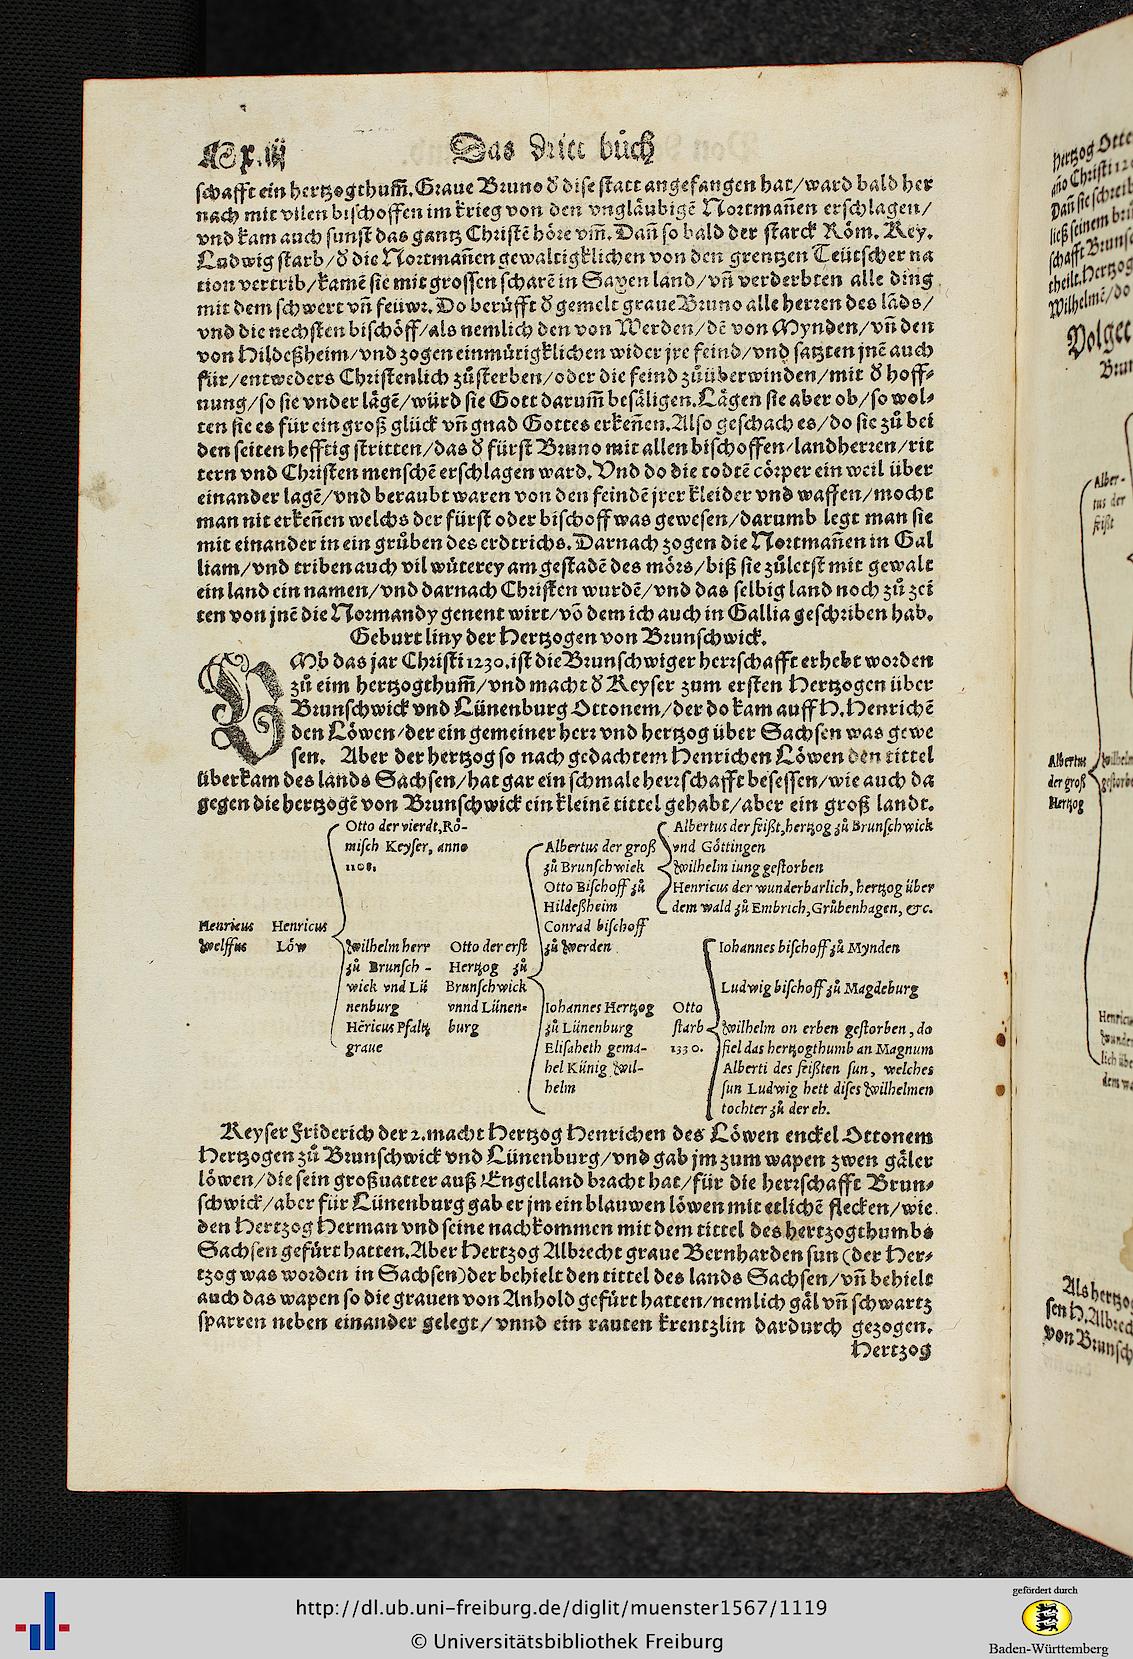 Mx.iij
Das dritt bůch
schafft ein hertzogthum̃. Graue Bruno d̕ dise statt angefangen hat/ward bald her
nach mit vilen bischoffen im krieg von den vngläubigẽ Nortmañen erschlagen/
vnd kam auch sunst das gantz Christẽ höre vm̃. Dañ so bald der starck Röm. Key.
Ludwig starb/d̕ die Nortmañen gewaltigklichen von den grentzen Teütscher na
tion vertrib/kamẽ sie mit grossen scharẽ in Saxen land/vñ verderbten alle ding
mit dem schwert vñ feüwr. Do berůfft d̕ gemelt graue Bruno alle herren des lãds/
vnd die nechsten bischöff/als nemlich den von Werden/dẽ von Mynden/vñ den
von Hildeßheim/vnd zogen einmütigklichen wider jre feind/vnd satzten jnẽ auch
für/entweders Christenlich zů sterben/oder die feind zů überwinden/mit d̕ hoff-
nung/so sie vnder lägẽ/würd sie Gott darum̃ besäligen. Lägen sie aber ob/so wol-
ten sie es für ein groß glück vñ gnad Gottes erkeñen. Also geschach es/do sie zů bei
den seiten hefftig stritten/das d̕ fürst Bruno mit allen bischoffen/landherren/rit
tern vnd Christen menschẽ erschlagen ward. Vnd do die todtẽ cörper ein weil über
einander lagẽ/vnd beraubt waren von den feindẽ jrer kleider vnd waffen/mocht
man nit erkeñen welchs der fürst oder bischoff was gewesen/darumb legt man sie
mit einander in ein grůben des erdtrichs. Darnach zogen die Nortmañen in Gal
liam/vnd triben auch vil wůterey am gestadẽ des mörs/biß sie zůletst mit gewalt
ein land ein namen/vnd darnach Christen wurdẽ/vnd das selbig land noch zů zei
ten von jnẽ die Normandy genent wirt/võ dem ich auch in Gallia geschriben hab.
Geburt liny der Hertzogen von Brunschwick.
VMb das jar Christi 1230. ist die Brunschwiger herrschafft erhebt worden
zů eim hertzogthum̃/vnd macht d̕ Keyser zum ersten Hertzogen über
Brunschwick vnd Lünenburg Ottonem/der do kam auff H. Henrichẽ
den Löwen/der ein gemeiner herr vnd hertzog über Sachsen was gewe
sen. Aber der hertzog so nach gedachtem Henrichen Löwen den tittel
überkam des lands Sachsen/hat gar ein schmale herrschafft besessen/wie auch da
gegen die hertzogẽ von Brunschwick ein kleinẽ tittel gehabt/aber ein groß landt.
Henricus
Welffus
Henricus
Löw
Otto der vierdt, Rö-
misch Keyser, anno
1108.
Wilhelm herr
zů Brunsch-
wick vnd Lü
nenburg
Hẽricus Pfaltz
graue
Otto der erst
Hertzog zů
Brunschwick
vnnd Lünen-
burg
Albertus der groß
zů Brunschwick
Otto Bischoff zů
Hildeßheim
Conrad bischoff
zů Werden
Iohannes Hertzog
zů Lünenburg
Elisabeth gema-
hel Künig Wil-
helm
Albertus der feißt, hertzog zů Brunschwick
vnd Göttingen
Wilhelm iung gestorben
Henricus der wunderbarlich, hertzog über
dem wald zů Embrich, Grůbenhagen, &c.
Otto
starb
1330.
Iohannes bischoff zů Mynden
Ludwig bischoff zů Magdeburg
Wilhelm on erben gestorben, do
fiel das hertzogthumb an Magnum
Alberti des feißten sun, welches
sun Ludwig hett dises Wilhelmen
tochter zů der eh.
Keyser Friderich der 2. macht Hertzog Henrichen des Löwen enckel Ottonem
Hertzogen zů Brunschwick vnd Lünenburg/vnd gab jm zum wapen zwen gäler
löwen/die sein großuatter auß Engelland bracht hat/für die herrschafft Brun-
schwick/aber für Lünenburg gab er jm ein blauwen löwen mit etlichẽ flecken/wie
den Hertzog Herman vnd seine nachkommen mit dem tittel des hertzogthumbs
Sachsen gefürt hatten. Aber Hertzog Albrecht graue Bernharden sun (der Her-
tzog was worden in Sachsen) der behielt den tittel des lands Sachsen/vñ behielt
auch das wapen so die grauen von Anhold gefürt hatten/nemlich gäl vñ schwartz
sparren neben einander gelegt/vnnd ein rauten krentzlin dardurch gezogen.
Hertzog
Hertzog Otte
año Christi
Dañ sie schreib
ließ seinem brů
schafft Brunsc
theilt. Hertzog
Wilhelmẽ/do
Volget
Brun
Alber-
tus der
feißt
Albertus
der groß
Hertzog
Wilhelm
gestorbẽ
Henricus
wunder
lich übe
dem wa
Als hertzog
sen H. Albrec
von Brunsch
http://dl.ub.uni-freiburg.de/diglit/muenster1567/1119
© Universitätsbibliothek Freiburg
gefördert durch
Baden-Württemberg